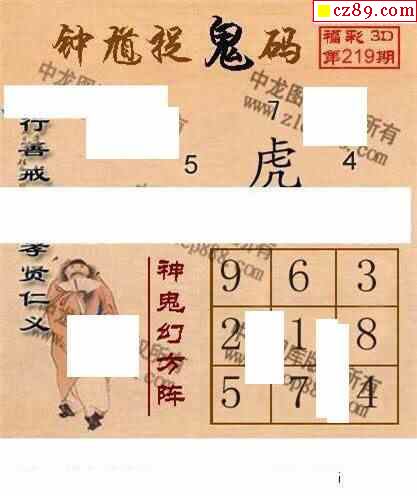 cz89.com
钟馗捉鬼码
福彩3D
第219期
7
5
虎
4
行善戒
孝贤仁义
神鬼幻方阵
9 6 3
2 1 8
5 7 4
i